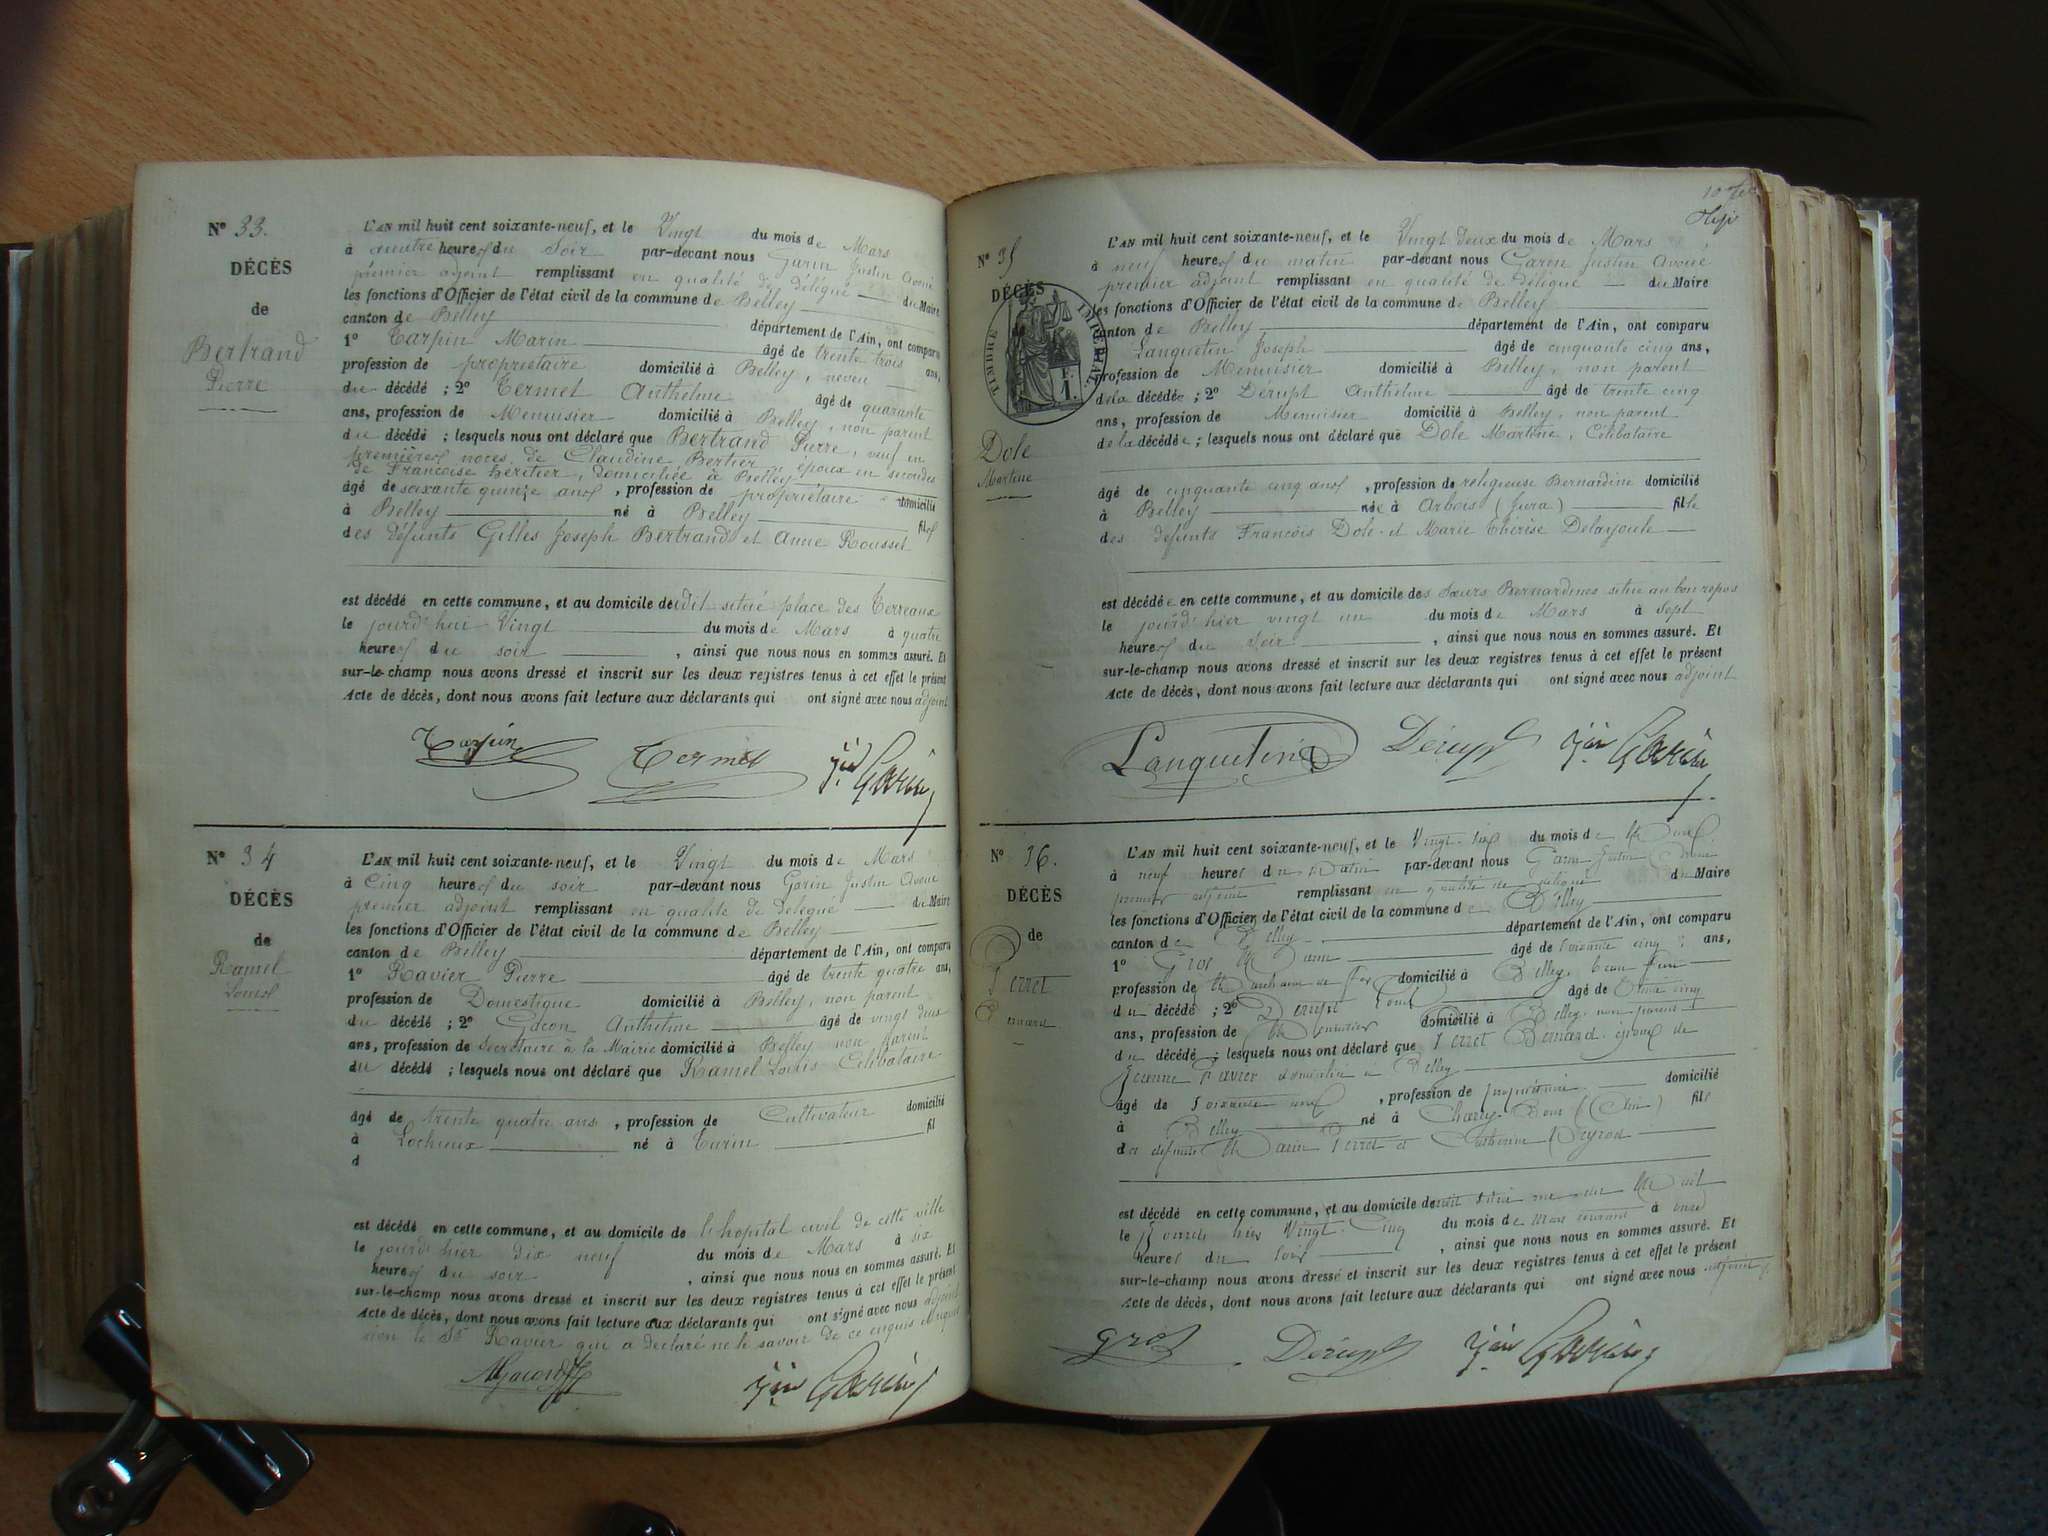 N° 33.
DÉCÈS
de
Bertrand
Pierre
L'AN mil huit cent soixante-neuf, et le Vingt du mois de Mars
à quatre heures du soir par-devant nous Garin Justin Avoué
premier adjoint remplissant en qualité de délégué du Maire
les fonctions d'Officier de l'état civil de la commune de Belley
canton de Belley département de l'Ain, ont comparu
1° Tarpin Marin âgé de trente trois ans,
profession de propriétaire domicilié à Belley, neveu
du décédé ; 2° Termet Anthelme âgé de quarante
ans, profession de Menuisier domicilié à Belley, non parent
du décédé ; lesquels nous ont déclaré que Bertrand Pierre, veuf en
premières noces de Claudine Bertier, époux en secondes
de Françoise héritier, domiciliée à Belley
âgé de soixante quinze ans, profession de propriétaire domicilié
à Belley né à Belley fils
des défunts Gilles Joseph Bertrand et Anne Rousset
est décédé en cette commune, et au domicile dudit situé place des Terreaux
le jourd'hui Vingt du mois de Mars à quatre
heures du soir, ainsi que nous nous en sommes assuré. Et
sur-le-champ nous avons dressé et inscrit sur les deux registres tenus à cet effet le présent
Acte de décès, dont nous avons fait lecture aux déclarants qui ont signé avec nous adjoint
Tarpin Termet Jin Garin
N° 34
DÉCÈS
de
Ramel
Louis
L'AN mil huit cent soixante-neuf, et le Vingt du mois de Mars
à Cinq heures du soir par-devant nous Garin Justin Avoué
premier adjoint remplissant en qualité de délégué du Maire
les fonctions d'Officier de l'état civil de la commune de Belley
canton de Belley département de l'Ain, ont comparu
1° Ravier Pierre âgé de trente quatre ans,
profession de Domestique domicilié à Belley, non parent
du décédé ; 2° Gacon Anthelme âgé de vingt deux
ans, profession de Secrétaire à la Mairie domicilié à Belley non parent
du décédé ; lesquels nous ont déclaré que Ramel Louis Célibataire
âgé de trente quatre ans, profession de Cultivateur domicilié
à Lochieux né à Turin fil
d
est décédé en cette commune, et au domicile de l'hopital civil de cette ville
le jourd'hier dix neuf du mois de Mars à six
heures du soir, ainsi que nous nous en sommes assuré. Et
sur-le-champ nous avons dressé et inscrit sur les deux registres tenus à cet effet le présent
Acte de décès, dont nous avons fait lecture aux déclarants qui ont signé avec nous adjoint
non le Sr Ravier qui a déclaré ne le savoir de ce enquis et requis
AGacon Jin Garin
N° 35
DÉCÈS
TIMBRE IMPERIAL
F. 1.
Dole
Martine
L'AN mil huit cent soixante-neuf, et le Vingt Deux du mois de Mars
à neuf heures du matin par-devant nous Garin Justin Avoué
premier adjoint remplissant en qualité de délégué du Maire
les fonctions d'Officier de l'état civil de la commune de Belley
canton de Belley, département de l'Ain, ont comparu
Lanquetin Joseph âgé de cinquante cinq ans,
profession de Menuisier domicilié à Belley, non parent
de la décédée ; 2° Dérupt Anthelme âgé de trente cinq
ans, profession de Menuisier domicilié à Belley, non parent
de la décédée ; lesquels nous ont déclaré que Dole Martine, Célibataire
âgé de cinquante cinq ans, profession de religieuse Bernardine domicilié
à Belley née à Arbois (Jura) fille
des défunts François Dole et Marie Thérèse Delajoute
est décédée en cette commune, et au domicile des Sœurs Bernardines situé au bon repos
le jourd'hier vingt un du mois de Mars à sept
heures du soir, ainsi que nous nous en sommes assuré. Et
sur-le-champ nous avons dressé et inscrit sur les deux registres tenus à cet effet le présent
Acte de décès, dont nous avons fait lecture aux déclarants qui ont signé avec nous adjoint
Lanquetin Dérupt Jin Garin
N° 36.
DÉCÈS
de
Perret
Bernard
L'AN mil huit cent soixante-neuf, et le Vingt Six du mois de Mars
à neuf heures du Matin par-devant nous Garin Justin Avoué
premier adjoint remplissant en qualité de délégué du Maire
les fonctions d'Officier de l'état civil de la commune de Belley
canton de Belley département de l'Ain, ont comparu
1° Gros Marin âgé de soixante cinq ans,
profession de Marchand de fer domicilié à Belley, beau frère
du décédé ; 2° Dérupt âgé de trente cinq
ans, profession de Menuisier domicilié à Belley, non parent
du décédé ; lesquels nous ont déclaré que Perret Bernard époux de
Jeanne Ravier domiciliée à Belley
âgé de soixante neuf, profession de propriétaire domicilié
à Belley né à (Ain) fils
des défunts Marin Perret et Catherine Peyrod
est décédé en cette commune, et au domicile dudit situé rue du
le jourd'hier Vingt Cinq du mois de Mars courant à onze
heures du soir, ainsi que nous nous en sommes assuré. Et
sur-le-champ nous avons dressé et inscrit sur les deux registres tenus à cet effet le présent
Acte de décès, dont nous avons fait lecture aux déclarants qui ont signé avec nous adjoint
Gros Dérupt Jin Garin